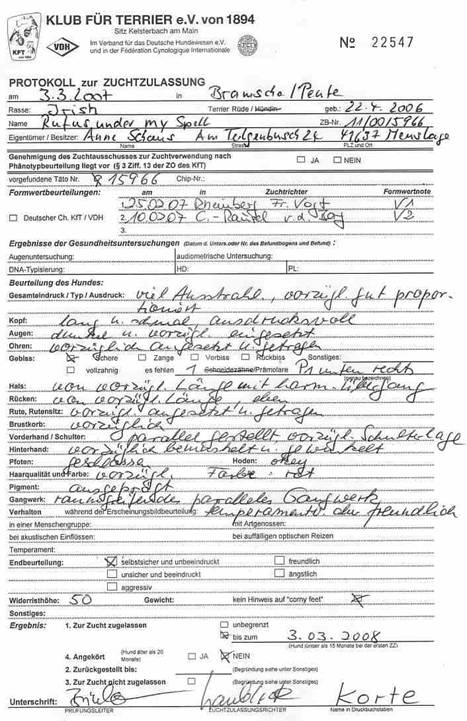 KLUB FÜR TERRIER e.V. von 1894
Sitz Kelsterbach am Main
KFT
VDH
Im Verband für das Deutsche Hundewesen e.V.
und in der Fédération Cynologique Internationale
№ 22547
PROTOKOLL zur ZUCHTZULASSUNG
am 3.3.2007 in Bramsche/Pente
Rasse: Irish Terrier Rüde / Hündin geb.: 22.4.2006
Name Rufus under my Spell ZB-Nr. 11/0015966
Eigentümer / Besitzer: Anne Schaus Am 24 49637 Menslage
Name Straße PLZ und Ort
Genehmigung des Zuchtausschusses zur Zuchtverwendung nach
Phänotypbeurteilung liegt vor (§ 3 Ziff. 13 der ZO des KfT) JA NEIN
vorgefundene Täto Nr. R 15966 Chip-Nr.:
Formwertbeurteilungen: am in Zuchtrichter Formwertnote
1. 25.02.07 Rheinberg Fr. Vogt V1
Deutscher Ch. KfT / VDH 2. 10.02.07 C.-Rauxel v.d. V2
3.
Ergebnisse der Gesundheitsuntersuchungen (Datum d. Unters. oder Nr. des Befundbogens und Befund) :
Augenuntersuchung: audiometrische Untersuchung:
DNA-Typisierung: HD: PL:
Beurteilung des Hundes:
Gesamteindruck / Typ / Ausdruck: viel Ausstrahl., vorzügl. gut propor-
tioniert
Kopf: lang u. schmal ausdrucksvoll
Augen: dunkel u. vorzügl. eingesetzt
Ohren: vorzüglich angesetzt u. getragen
Gebiss: Schere Zange Vorbiss Rückbiss Sonstiges:
vollzahnig es fehlen 1 Schneidezähne/Prämolare P1 unten rechts
Hals: von vorzügl. Länge mit harm.
Rücken: von vorzügl. Länge
Rute, Rutensitz: vorzügl. angesetzt u. getragen
Brustkorb: vorzüglich
Vorderhand / Schulter: parallel gestellt vorzügl. Schulterlage
Hinterhand: vorzüglich bemuskelt u. gewinkelt
Pfoten: geschlossen Hoden: okey
Haarqualität und Farbe: vorzügl. Farbe: rot
Pigment: ausgeprägt
Gangwerk: raumgreifendes paralleles Gangwerk
Verhalten während der Erscheinungsbildbeurteilung: temperamentv. aber freundlich
in einer Menschengruppe: mit Artgenossen:
bei akustischen Einflüssen: bei auffälligen optischen Reizen
Temperament:
Endbeurteilung: selbstsicher und unbeeindruckt freundlich
unsicher und beeindruckt ängstlich
aggressiv
Widerristhöhe: 50 Gewicht: kein Hinweis auf "corny feet"
Sonstiges:
Ergebnis: 1. Zur Zucht zugelassen unbegrenzt
bis zum 3.03.2008
(Hund jünger als 15 Monate bei der ersten ZZ)
4. Angekört (Hund älter als 20 Monate) JA NEIN
2. Zurückgestellt bis: (Begründung siehe unter Sonstiges)
3. Zur Zucht nicht zugelassen (Begründung siehe unter Sonstiges)
Unterschrift: Korte
PRÜFUNGSLEITER ZUCHTZULASSUNGSRICHTER Name in Druckbuchstaben